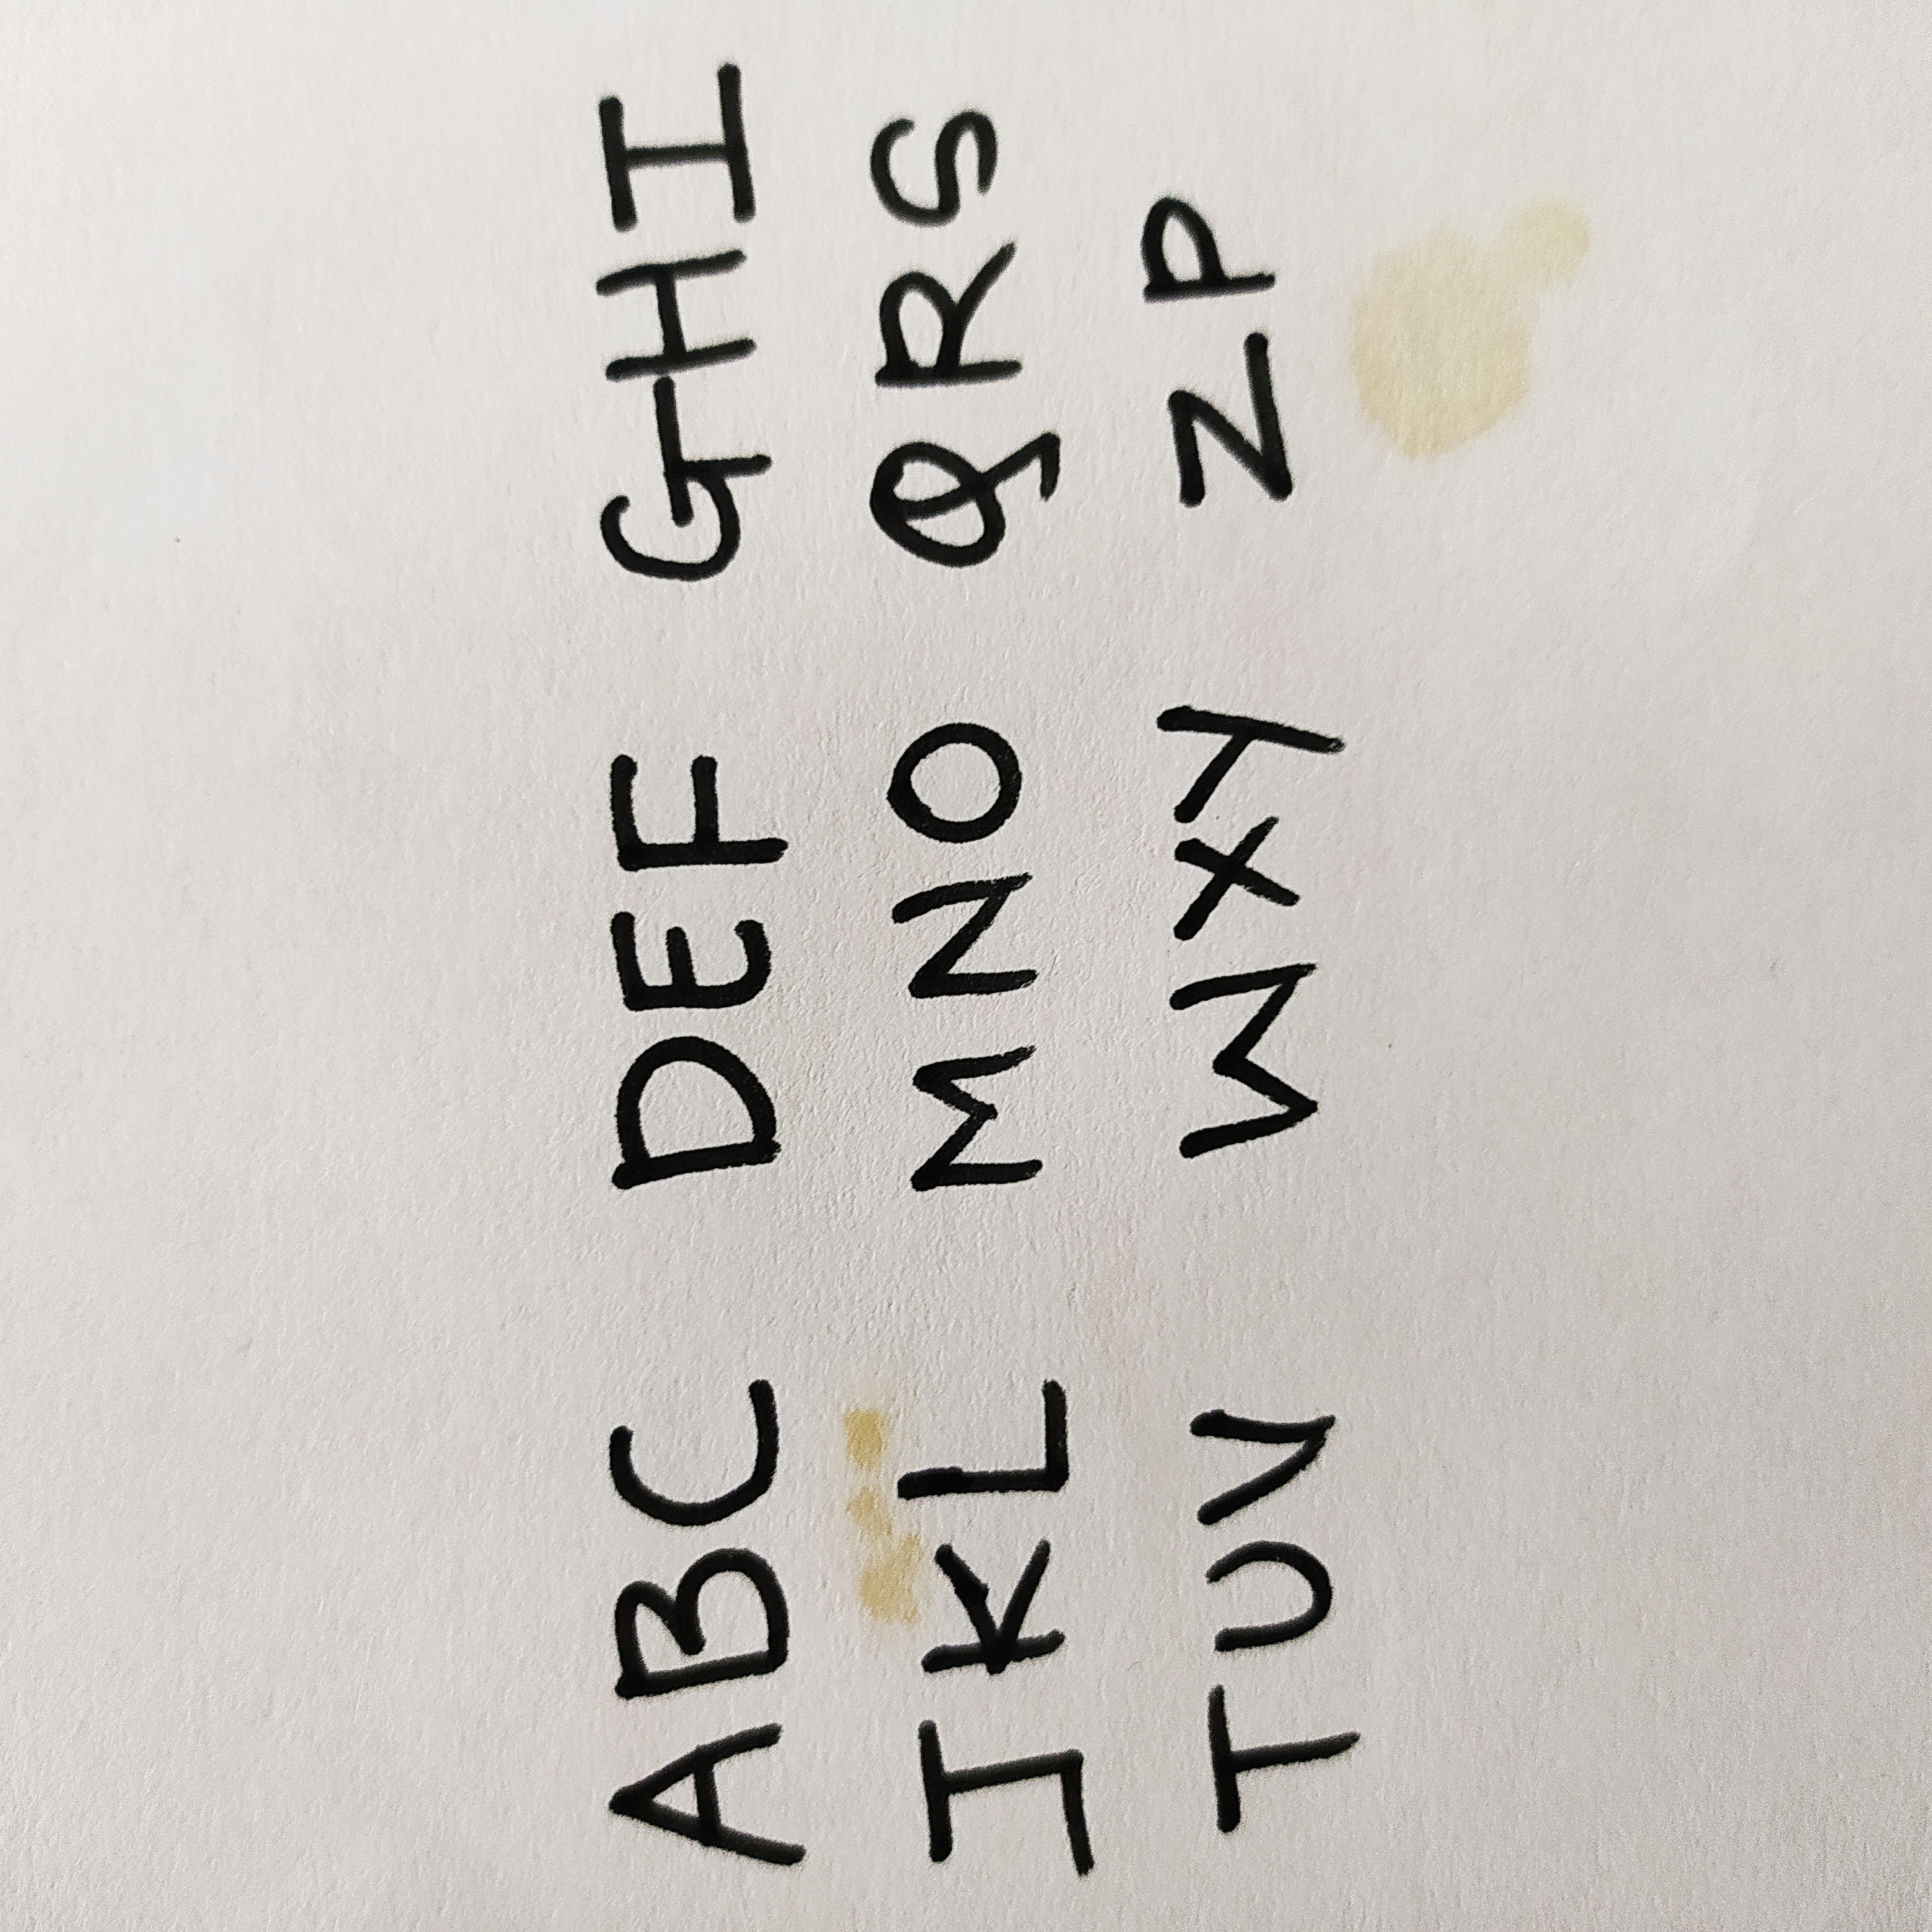 ABC DEF GHI
JKL MNO QRS
TUV WXY ZP